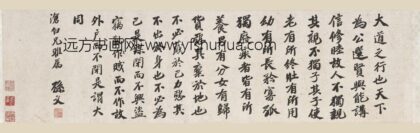 大道之行也天下
為公選賢與能講
信修睦故人不獨親
其親不獨子其子使
老有所終壯有所用
幼有所長矜寡孤
獨廢疾者皆有所
養男有分女有歸
貨惡其棄於地也
不必藏於己力惡其
不出於身也不必為
己是故謀閉而不興盜
竊亂賊而不作故
外戶而不閉是謂大
同
仁兄雅屬
孫文
远方书画网 www.yfshuhua.com